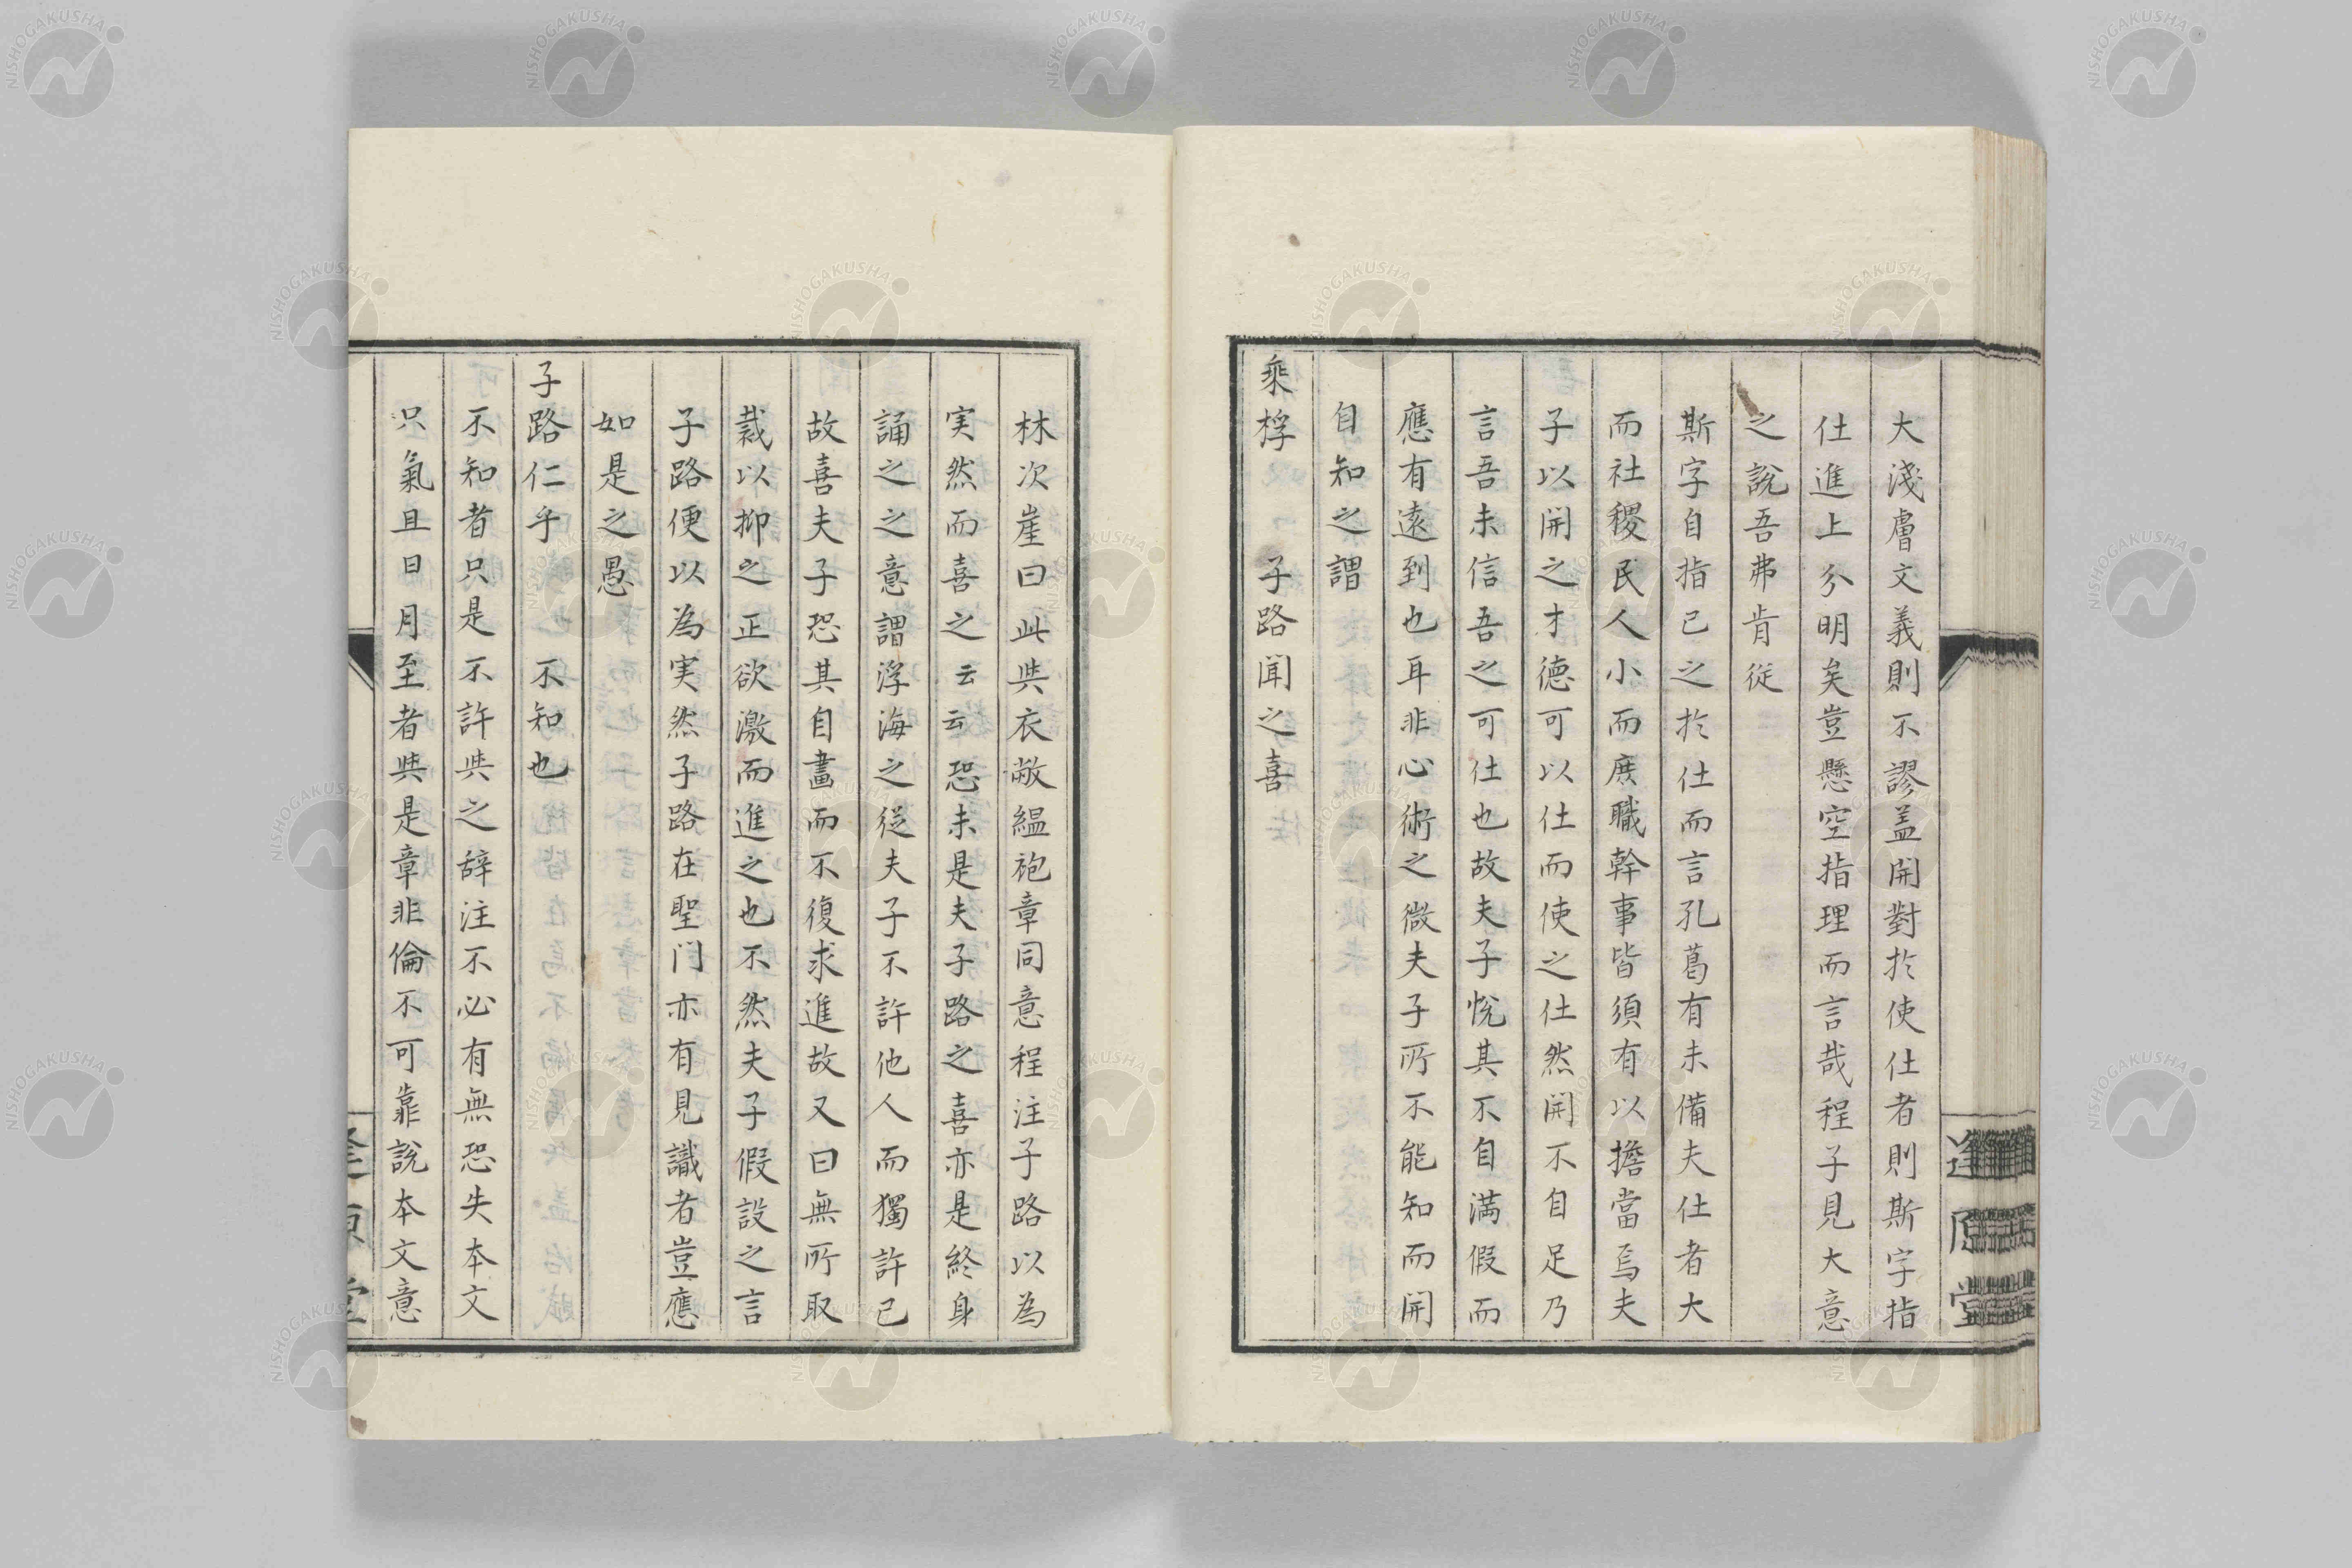 大淺膚文義則不謬盖開對於使仕者則斯字指
仕進上分明矣豈懸空指理而言哉程子見大意
之說吾弗肯從
斯字自指己之於仕而言孔葛有未備夫仕者大
而社稷民人小而庶職幹事皆須有以擔當焉夫
子以開之才德可以仕而使之仕然開不自足乃
言吾未信吾之可仕也故夫子悅其不自満假而
應有遠到也耳非心術之微夫子所不能知而開
自知之謂
乘桴　子路聞之喜
逢原堂
林次崖曰此與衣敝縕袍章同意程注子路以為
実然而喜之云云恐未是夫子路之喜亦是終身
誦之之意謂浮海之從夫子不許他人而獨許己
故喜夫子恐其自畫而不復求進故又曰無所取
裁以抑之正欲激而進之也不然夫子假設之言
子路便以為実然子路在聖门亦有見識者豈應
如是之愚
子路仁乎　不知也
不知者只是不許與之辞注不必有無恐失本文
只氣且日月至者與是章非倫不可靠說本文意
NISHOGAKUSHA